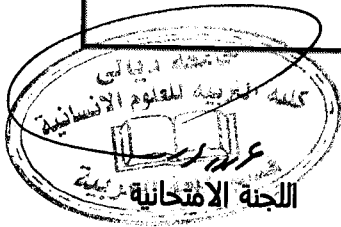 جامعة ديالى
كلية التربية للعلوم الانسانية
العربية
اللجنة الامتحانية